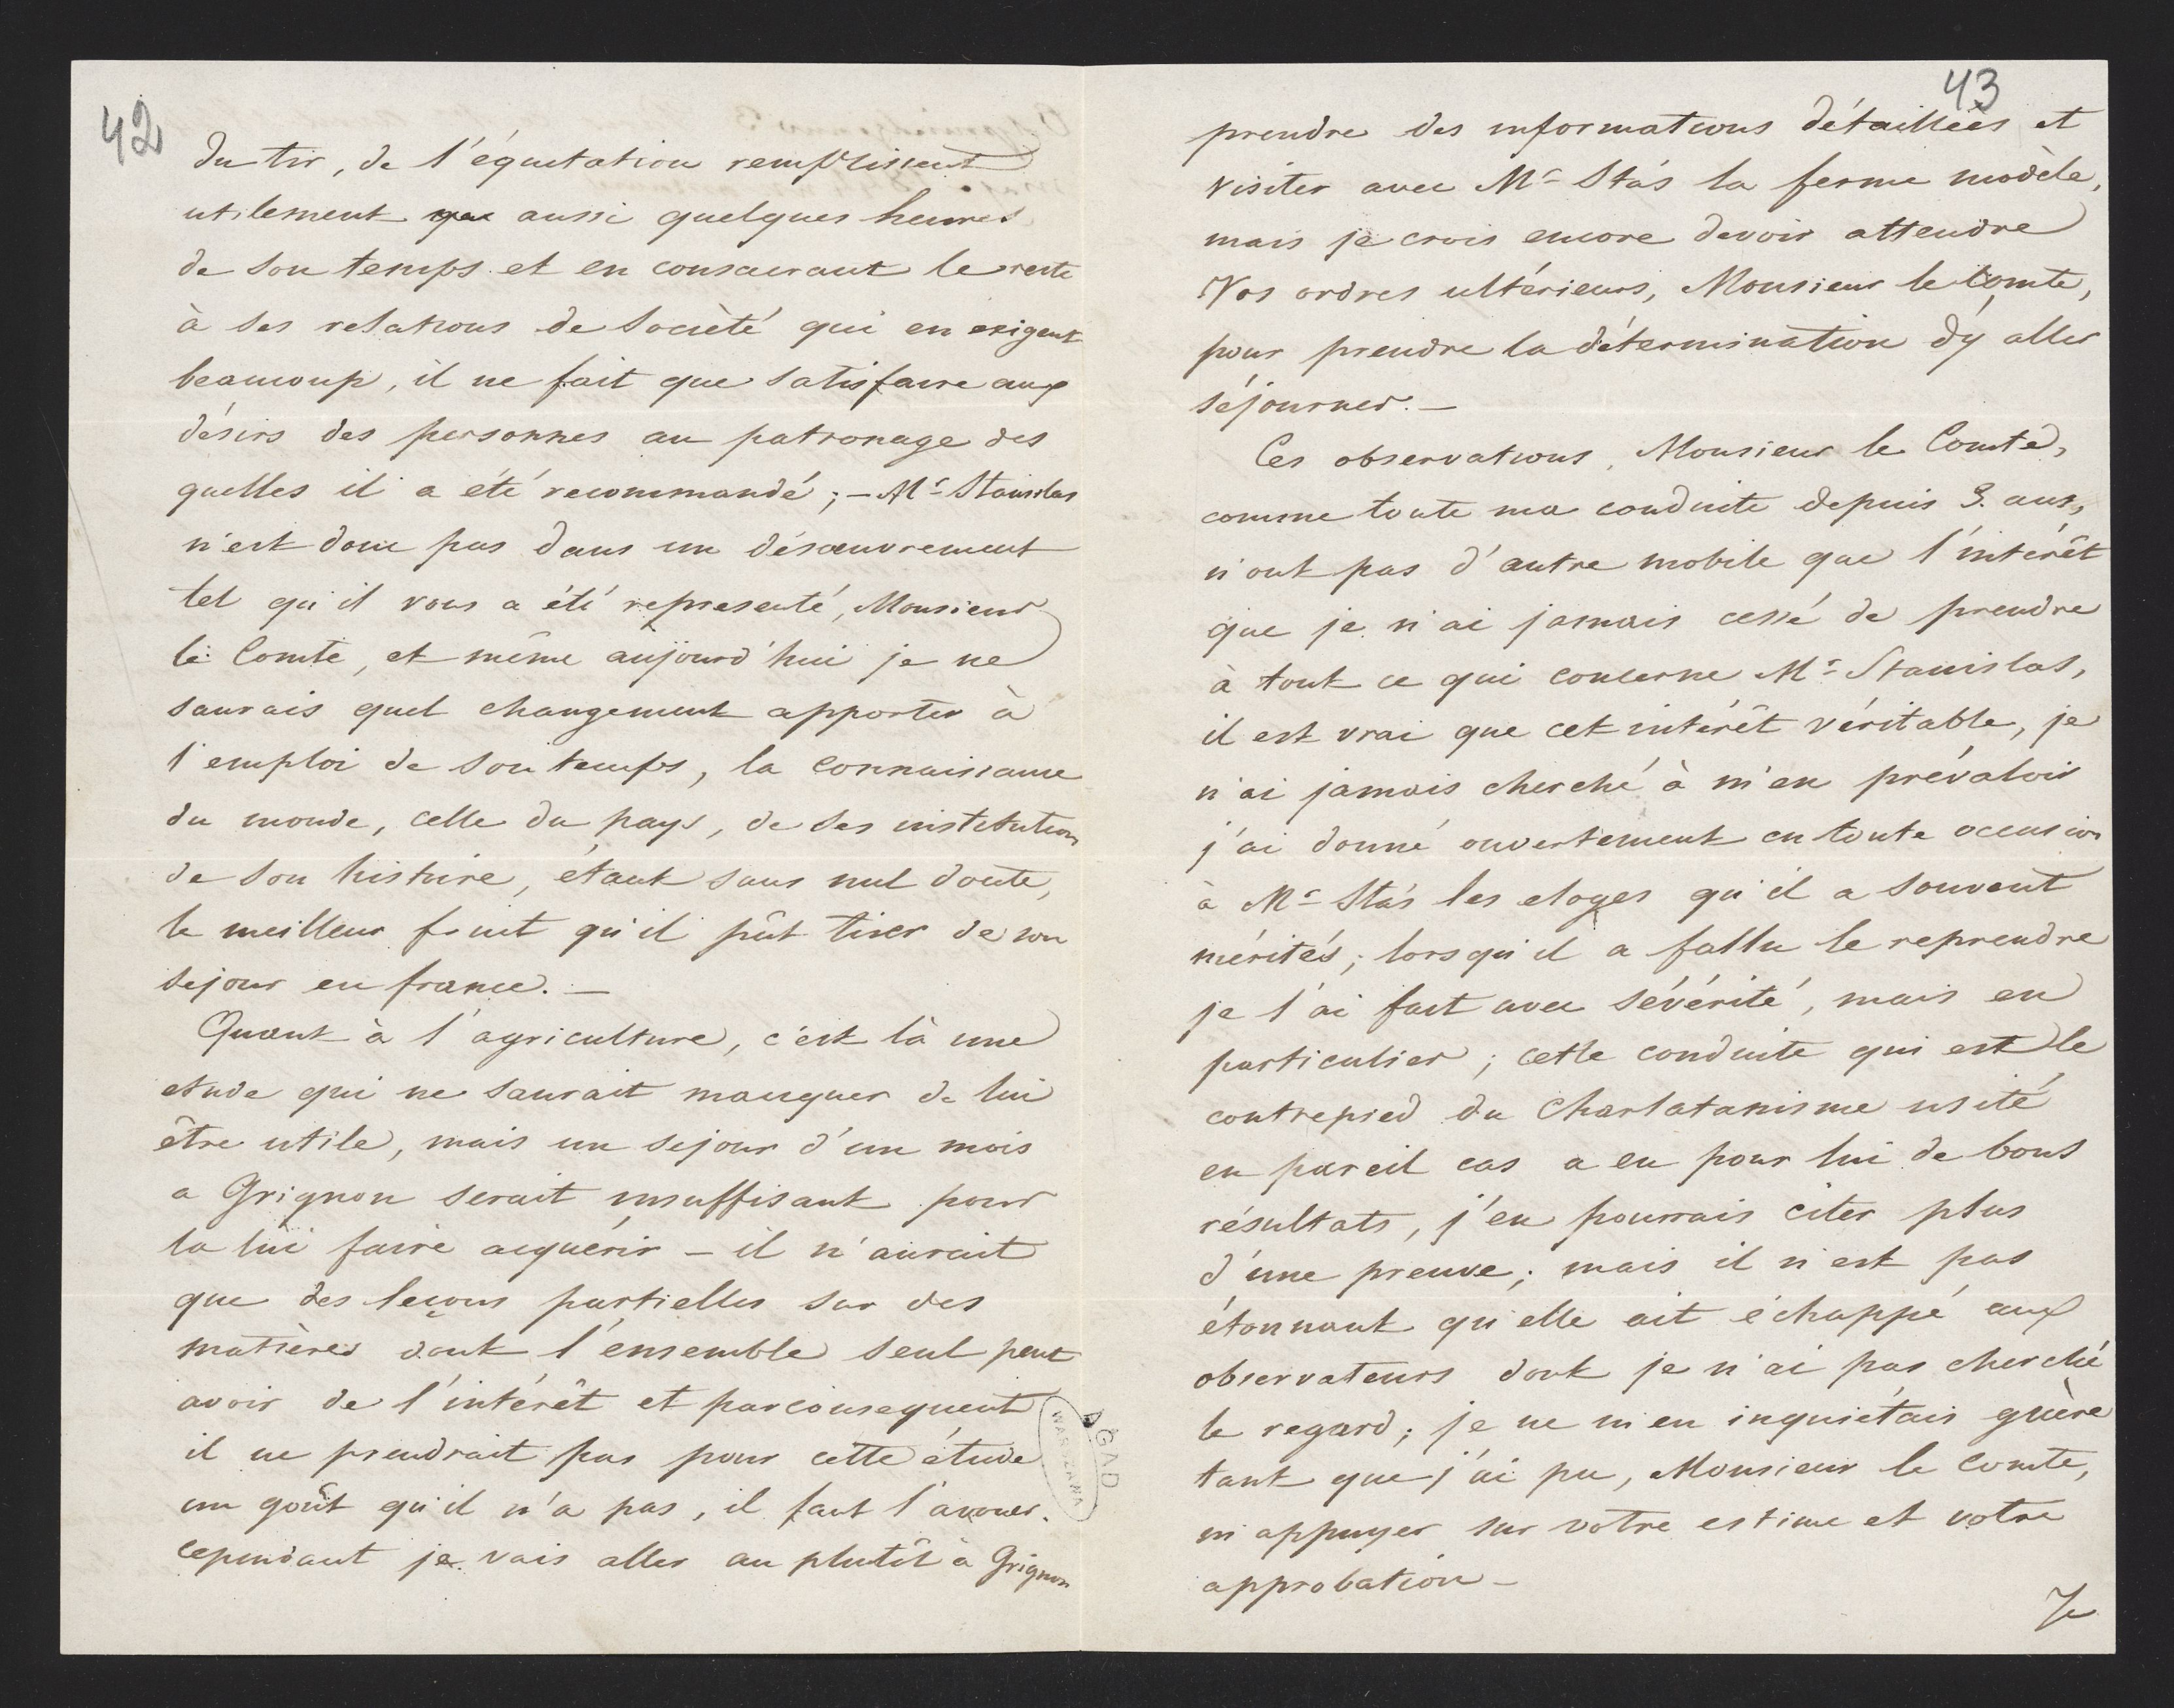 42
du tir, de l'équitation remplissent
utilement que aussi quelques heures
de son temps et en consacrant le reste
à ses relations de Société qui en exigent
beaucoup, il ne fait que satisfaire aux
désirs des personnes au patronage des
quelles il a été recommandé; – Mr Stanislas
n'est donc pas dans un désœuvrement
tel qu'il vous a été représenté, Monsieur
le Comte, et même aujourd'hui je ne
saurais quel changement apporter à
l'emploi de son temps, la connaissance
du monde, celle du pays, de ses institutions
de son histoire, étant sans nul doute,
le meilleur fruit qu'il pût tirer de son
sejour en france. –
Quant à l'agriculture, c'est là une
etude qui ne saurait manquer de lui
être utile, mais un sejour d'un mois
a Grignon serait insuffisant pour
la lui faire acquérir – il n'aurait
que des leçons partielles sur des
matières dont l'ensemble seul peut
avoir de l'intérêt et parconsequent
il ne prendrait pas pour cette étude
un goût qu'il n'a pas, il faut l'avouer.
cependant je vais aller au plutôt à Grignon
AGAD
WARSZAWA
43
prendre des informations détaillées et
visiter avec Mr Stas la ferme modèle,
mais je crois encore devoir attendre
Vos ordres ultérieurs, Monsieur le Comte,
pour prendre la détermination d'y aller
séjourner. –
Ces observations, Monsieur le Comte,
comme toute ma conduite depuis 3. ans,
n'ont pas d'autre mobile que l'intérêt
que je n'ai jamais cessé de prendre
à tout ce qui concerne Mr Stanislas,
il est vrai que cet intérêt véritable, je
n'ai jamais cherché à m'en prévaloir
j'ai donné ouvertement en toute occasion
à Mr Stas les eloges qu'il a souvent
mérités; lorsqu'il a fallu le reprendre
je l'ai fait avec sévérité, mais en
particulier; cette conduite qui est le
contrepied du Charlatanisme usité
en pareil cas a eu pour lui de bons
résultats, j'en pourrais citer plus
d'une preuve; mais il n'est pas
étonnant qu'elle ait échappé aux
observateurs dont je n'ai pas cherché
le regard; je ne m'en inquiétais guère
tant que j'ai pu, Monsieur le Comte,
m'appuyer sur votre estime et votre
approbation –
Je